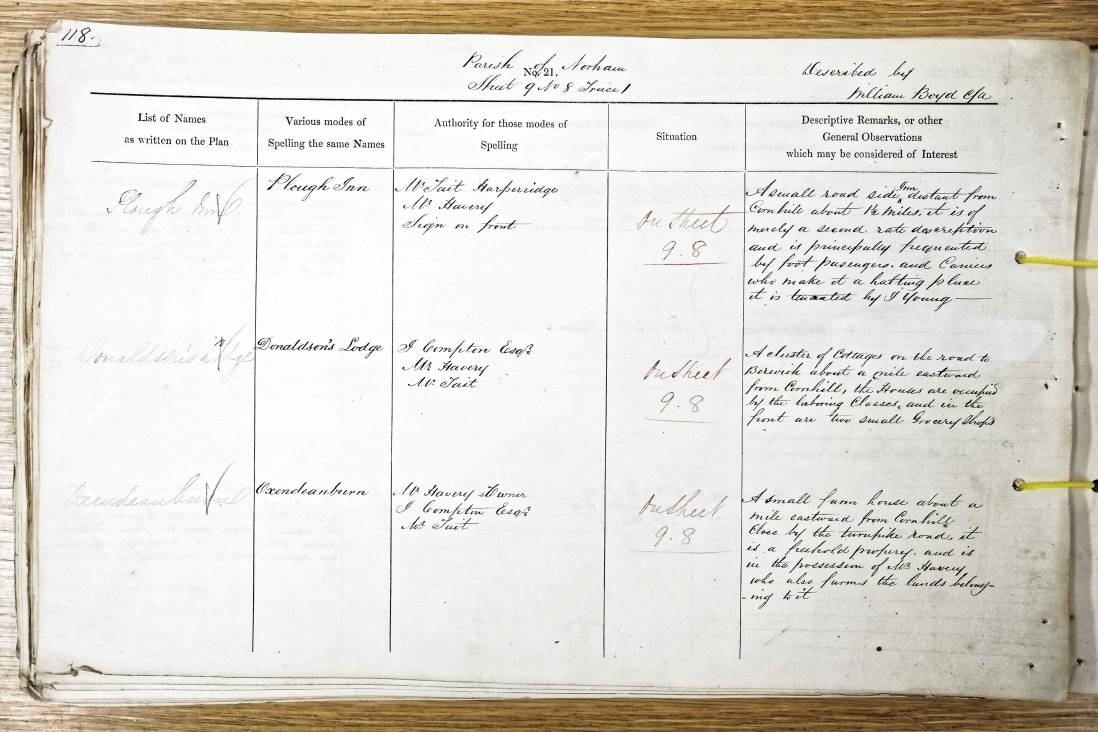 118.
Parish of Norham
No. 21.
Sheet 9 No 8 Trace 1
Described by
William Boyd C/a
List of Names
as written on the Plan
Various modes of
Spelling the same Names
Authority for those modes of
Spelling
Situation
Descriptive Remarks, or other
General Observations
which may be considered of Interest
Plough Inn
Plough Inn
Mr Tait Harperridge
Mr Havery
Sign on front
On Sheet
9.8
A small road side Inn, distant from
Cornhill about 1½ miles, it is of
merely a second rate description
and is principally frequented
by foot pasengers. and Carriers
who make it a halting place
it is tenanted by T Young
Donaldson's Lodge
Donaldson's Lodge
J Compton Esqr.
Mr Havery
Mr Tait
On Sheet
9.8
A cluster of Cottages on the road to
Berwick about a mile eastward
from Cornhill, the Houses are occupied
by the laboring Classes, and in the
front are two small Grocery Shops
Oxendeanburn
Oxendeanburn
Mr Havery Owner
J Compton Esqr.
Mr Tait
On Sheet
9.8
A small farm house about a
mile eastward from Cornhill
Close by the turnpike road, it
is a freehold propery. and is
in the possession of Mr Havery
who also farms the lands belong-
-ing to it